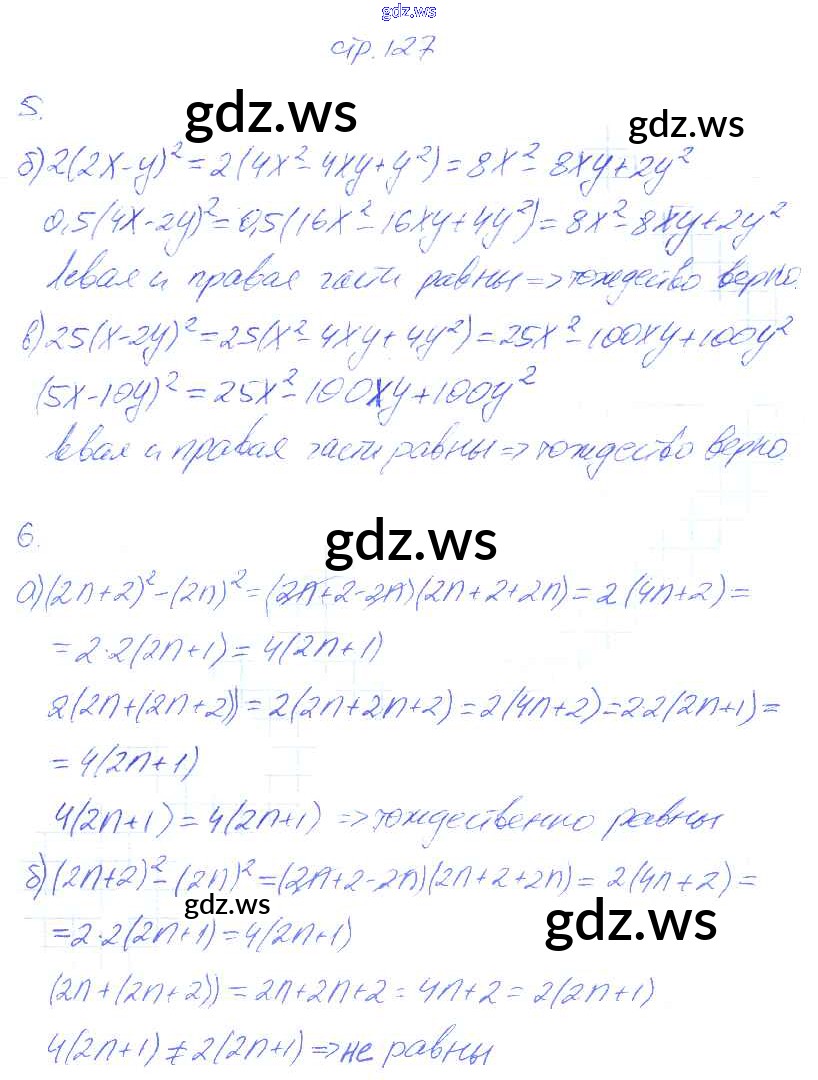 gdz.ws
стр. 127
5.
gdz.ws
gdz.ws
б) 2(2x-y)² = 2(4x² - 4xy + y²) = 8x² - 8xy + 2y²
0,5(4x-2y)² = 0,5(16x² - 16xy + 4y²) = 8x² - 8xy + 2y²
левая и правая части равны => тождество верно.
в) 25(x-2y)² = 25(x² - 4xy + 4y²) = 25x² - 100xy + 100y²
(5x-10y)² = 25x² - 100xy + 100y²
левая и правая части равны => тождество верно.
6.
gdz.ws
а) (2n+2)² - (2n)² = (2n+2-2n)(2n+2+2n) = 2(4n+2) =
= 2·2(2n+1) = 4(2n+1)
2(2n+(2n+2)) = 2(2n+2n+2) = 2(4n+2) = 2·2(2n+1) =
= 4(2n+1)
4(2n+1) = 4(2n+1) => тождественно равны
б) (2n+2)² - (2n)² = (2n+2-2n)(2n+2+2n) = 2(4n+2) =
gdz.ws
gdz.ws
= 2·2(2n+1) = 4(2n+1)
(2n+(2n+2)) = 2n+2n+2 = 4n+2 = 2(2n+1)
4(2n+1) ≠ 2(2n+1) => не равны